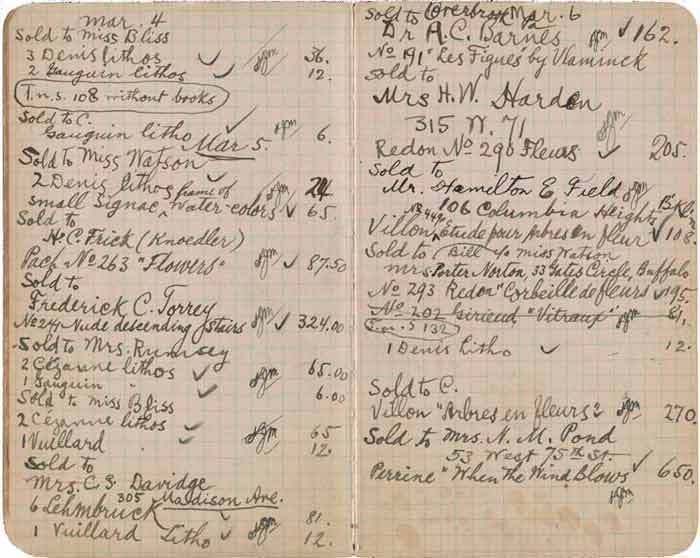 Mar. 4
Sold to Miss Bliss
3 Denis lithos 36.
2 Gauguin lithos 12.
T.n.s. 108 without books
Sold to C.
Gauguin litho 6.
Mar 5.
Sold to Miss Watson
2 Denis lithos 24
small Signac frame of water-colors 65
Sold to
H. C. Frick (Knoedler)
Pach No 263 "Flowers" 87.50
Sold to
Frederick C. Torrey
No 244 Nude descending stairs 324.00
Sold to Mrs. Rumsey
2 Cézanne lithos 65.00
1 Gauguin " 6.00
Sold to Miss Bliss
2 Cézanne lithos 65
1 Vuillard " 12.
Sold to
Mrs. C. S. Davidge
305 Maddison Ave.
6 Lehmbruck 81.
1 Vuillard Litho 12.
Mar. 6
Sold to Overbrook Pa
Dr A. C. Barnes 162.
No 191 "Les Figues" by Vlaminck
Sold to
Mrs H. W. Harden
315 W. 71
Redon No 290 Fleurs 205.
Sold to
Mr. Hamilton E Field
106 Columbia Heights Bkln
Villon, Etude pour Arbres en fleur 108
Sold to (Bill c/o Miss Watson
Mrs Porter Norton, 33 Gates Circle, Buffalo
No 293 Redon "Corbeille de fleurs 195.
No 202 Girieud "Vitraux" 81.
T.n.s 132
1 Denis Litho 12.
Sold to C.
Villon "Arbres en fleurs" 270.
Sold to Mrs. N. M. Pond
53 West 75th St.
Perrine "When the Wind Blows 650.